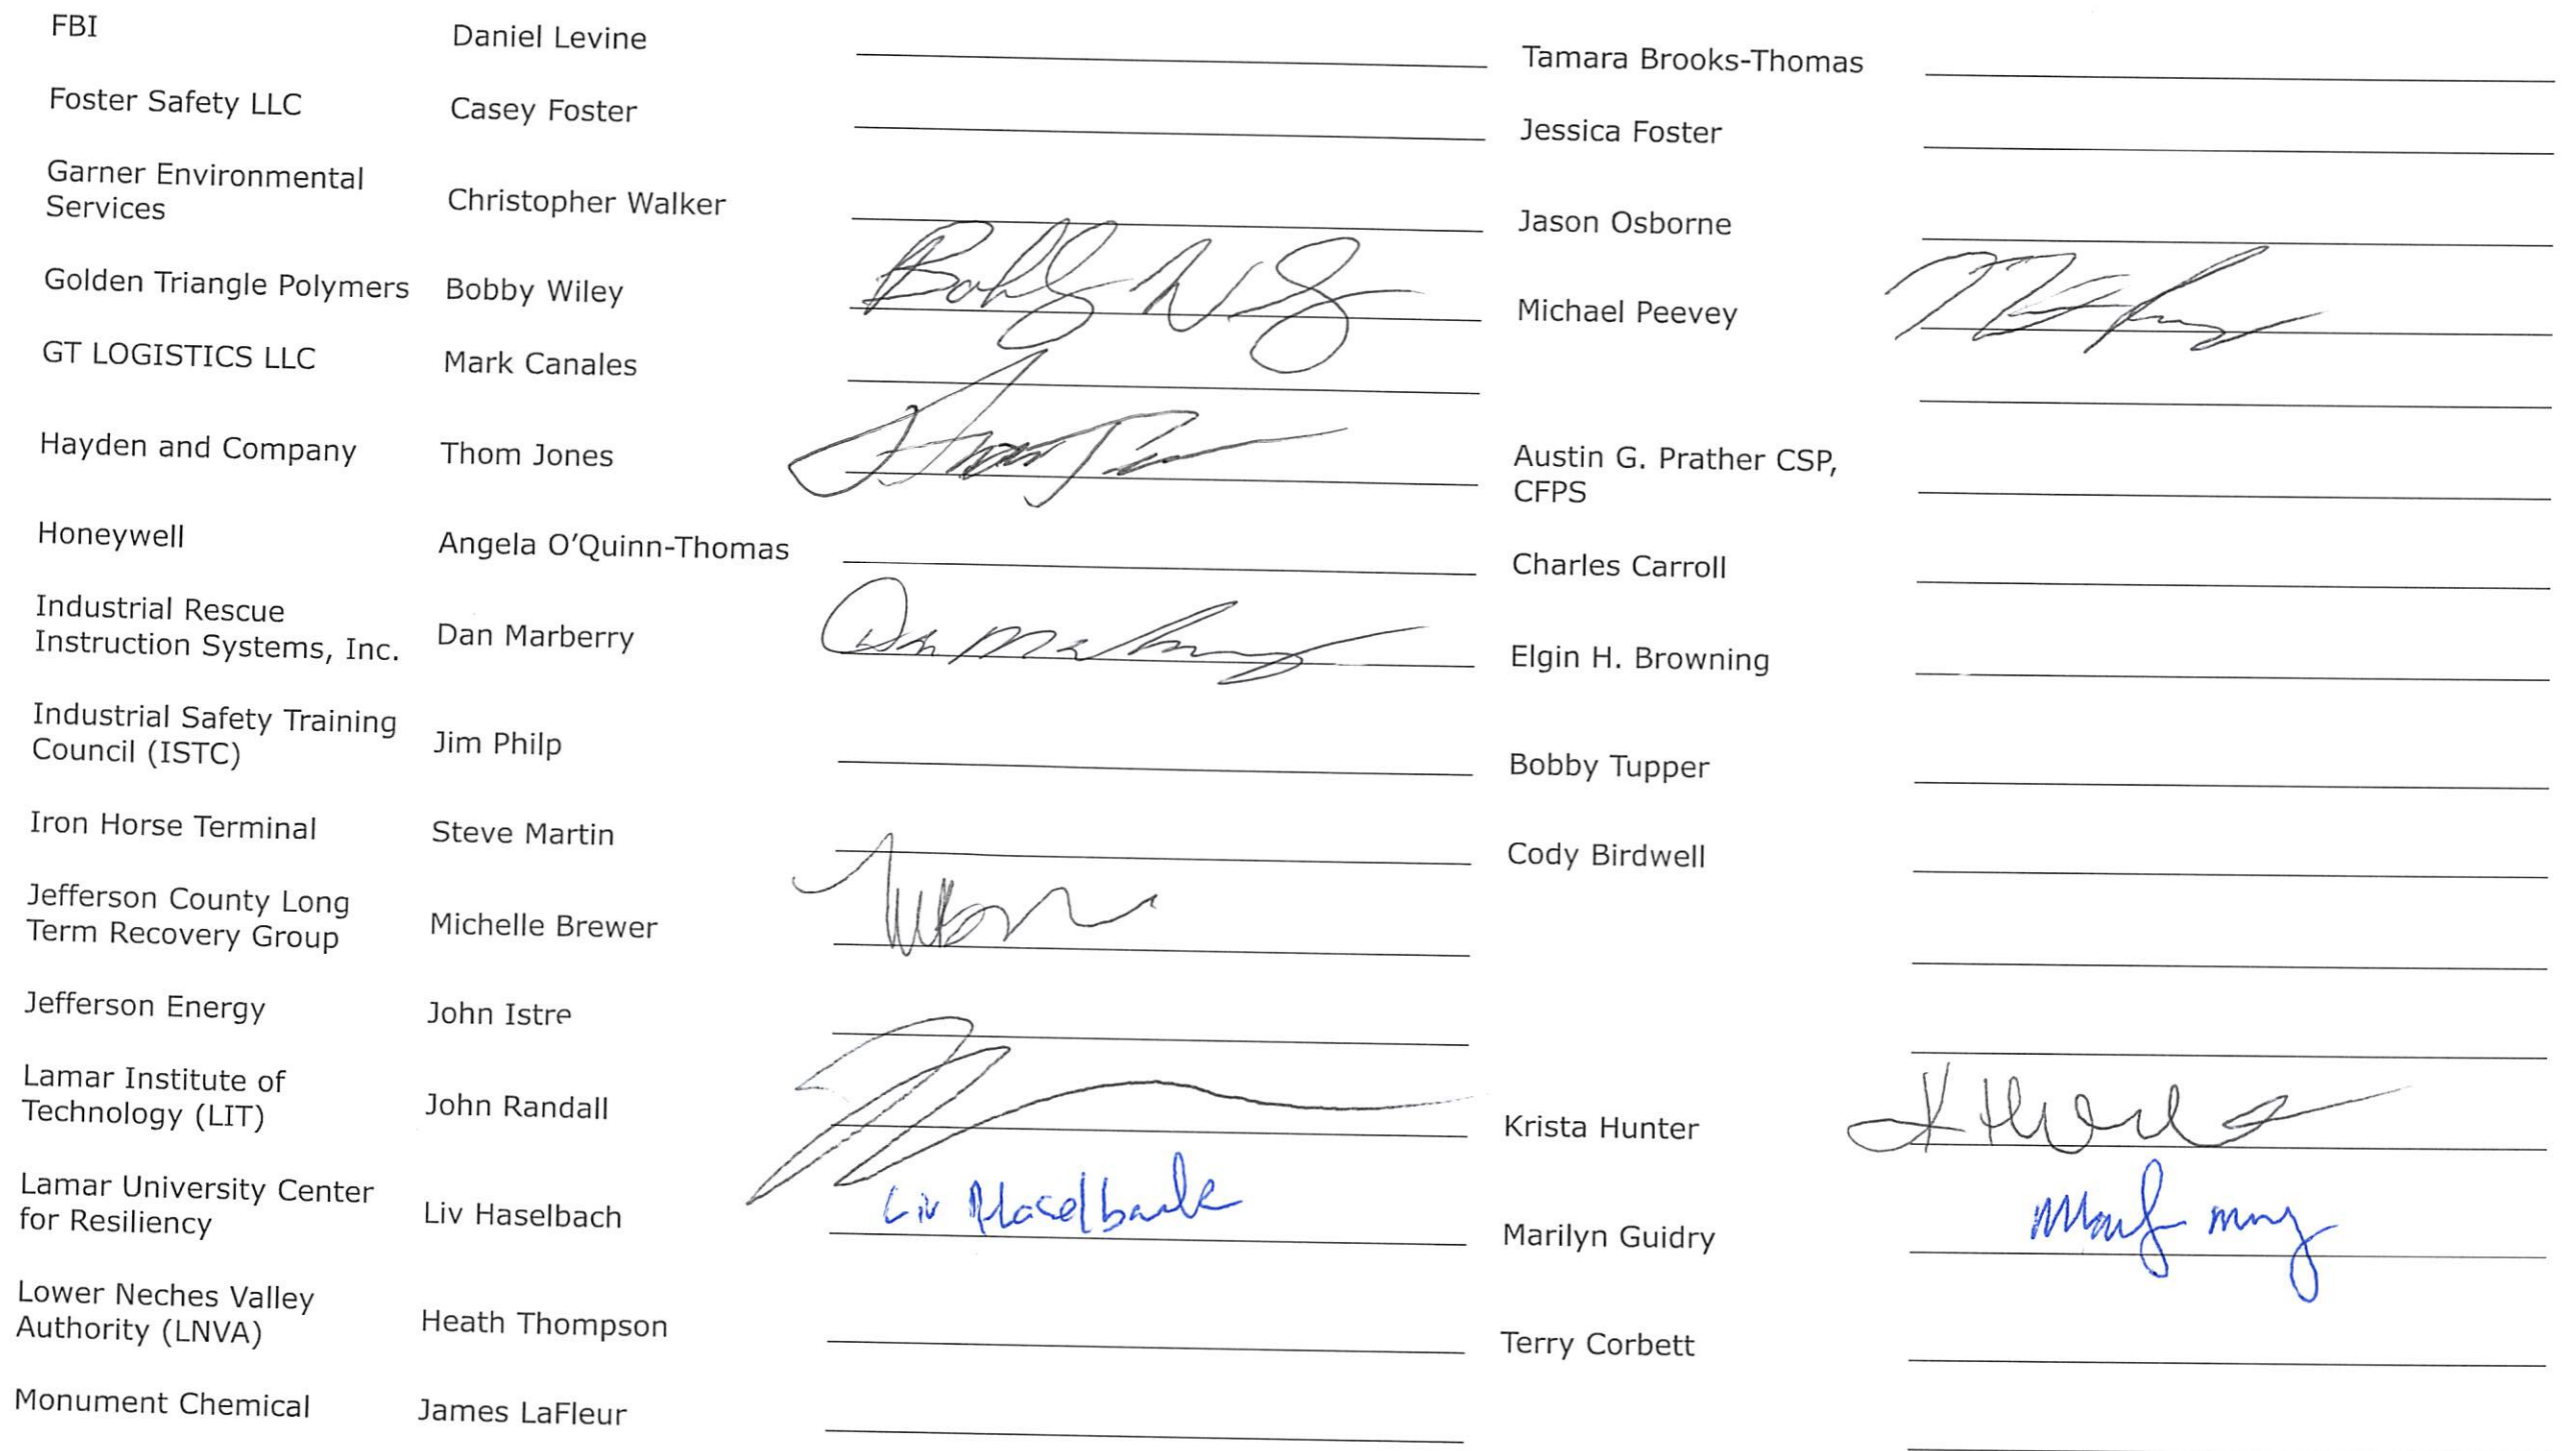 FBI Daniel Levine Tamara Brooks-Thomas
Foster Safety LLC Casey Foster Jessica Foster
Garner Environmental
Services Christopher Walker Jason Osborne
Golden Triangle Polymers Bobby Wiley Michael Peevey
GT LOGISTICS LLC Mark Canales
Hayden and Company Thom Jones Austin G. Prather CSP,
CFPS
Honeywell Angela O’Quinn-Thomas Charles Carroll
Industrial Rescue
Instruction Systems, Inc. Dan Marberry Elgin H. Browning
Industrial Safety Training
Council (ISTC) Jim Philp Bobby Tupper
Iron Horse Terminal Steve Martin Cody Birdwell
Jefferson County Long
Term Recovery Group Michelle Brewer
Jefferson Energy John Istre
Lamar Institute of
Technology (LIT) John Randall Krista Hunter
Lamar University Center
for Resiliency Liv Haselbach Liv Haselbach Marilyn Guidry
Lower Neches Valley
Authority (LNVA) Heath Thompson Terry Corbett
Monument Chemical James LaFleur